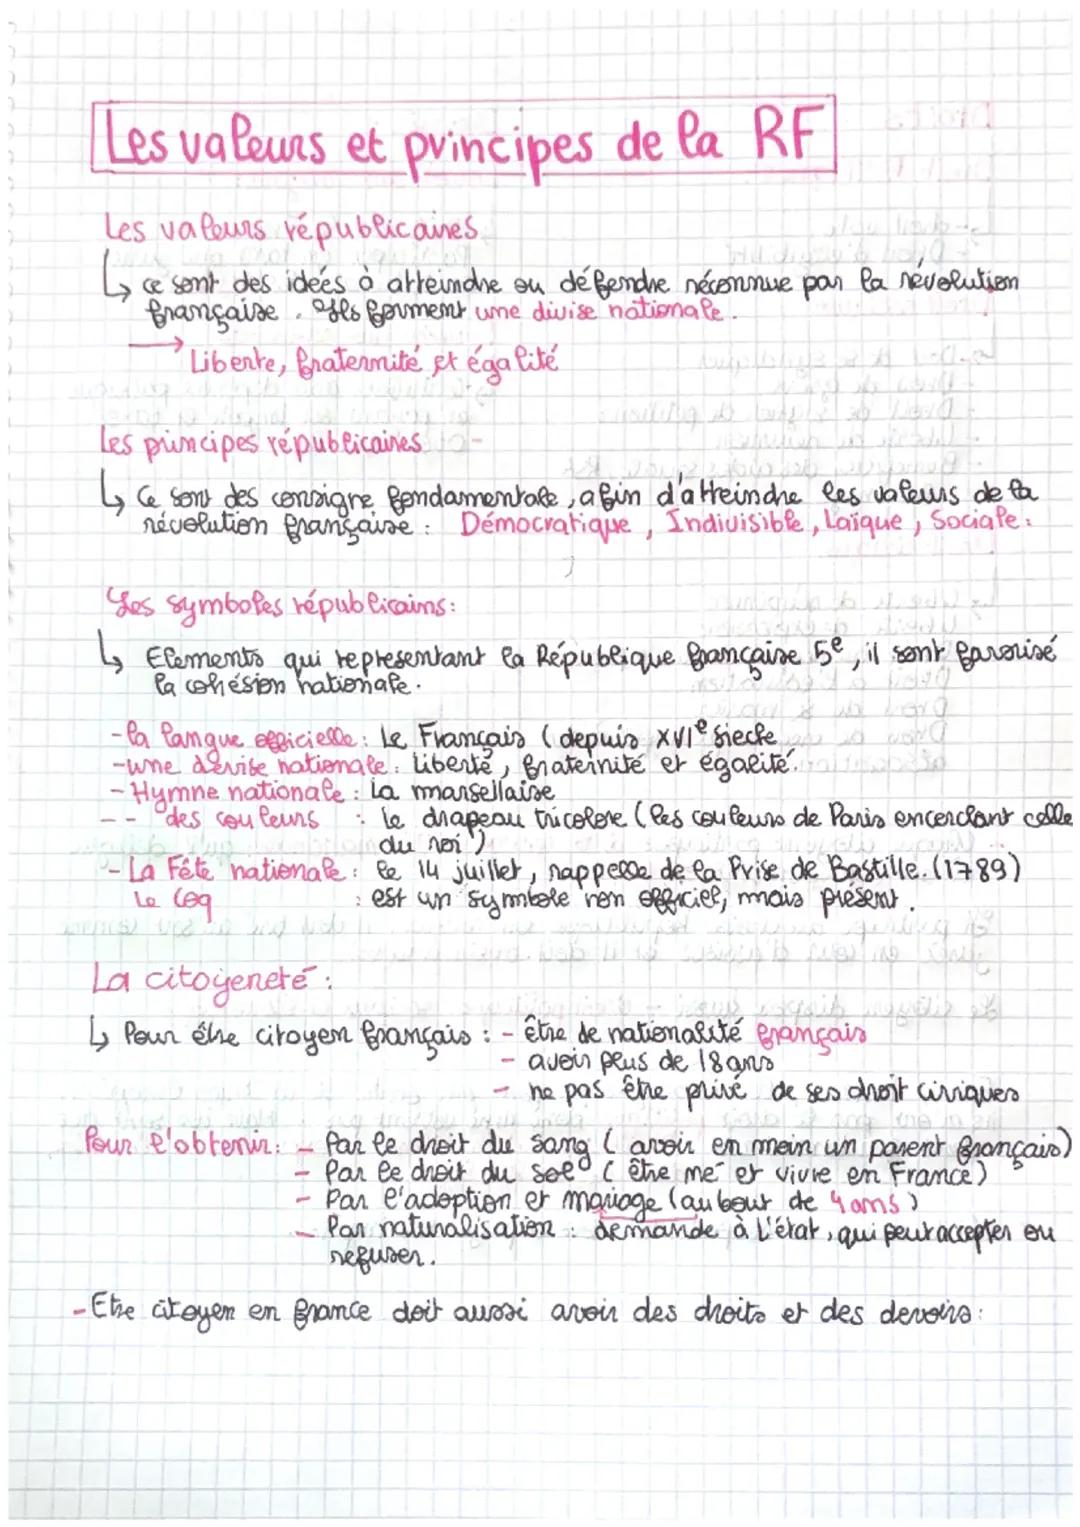 Les valeurs et principes de la RF
Les valeurs républicaines
↳ ce sont des idées à atteindre ou défendre réconnue par la révolution
française. Ils forment une divise nationale.
→ Liberte, fraternité et égalité
Les principes républicaines
↳ Ce sont des consigne fondamentale, afin d'atteindre les valeurs de la
révolution française : Démocratique, Indivisible, Laïque, Sociale.
Les symboles républicains:
↳ Elements qui representant la République française 5e, il sont favorisé
la cohésion nationale.
- la langue officielle: Le Français (depuis XVIe siecle
- une devise nationale: liberté, fraternité et égalité.
- Hymne nationale : La marsellaise
-- des couleurs : le drapeau tricolore (les couleurs de Paris encerclant celle
du roi)
- La Fête nationale: le 14 juillet, rappelle de la Prise de Bastille. (1789)
Le Coq : est un symbole non officiel, mais présent.
La citoyeneté :
↳ Pour être citoyen français : - être de nationalité français
- avoir plus de 18 ans
- ne pas être privé de ses droit civiques
Pour l'obtenir: - Par le droit du sang (avoir en moin un parent français)
- Par le droit du sol (être né et vivre en France)
- Par l'adoption et mariage (au bout de 4 ans)
- Par naturalisation : demande à l'état, qui peut accepter ou
refuser.
- Etre citoyen en france doit aussi avoir des droits et des devoirs: